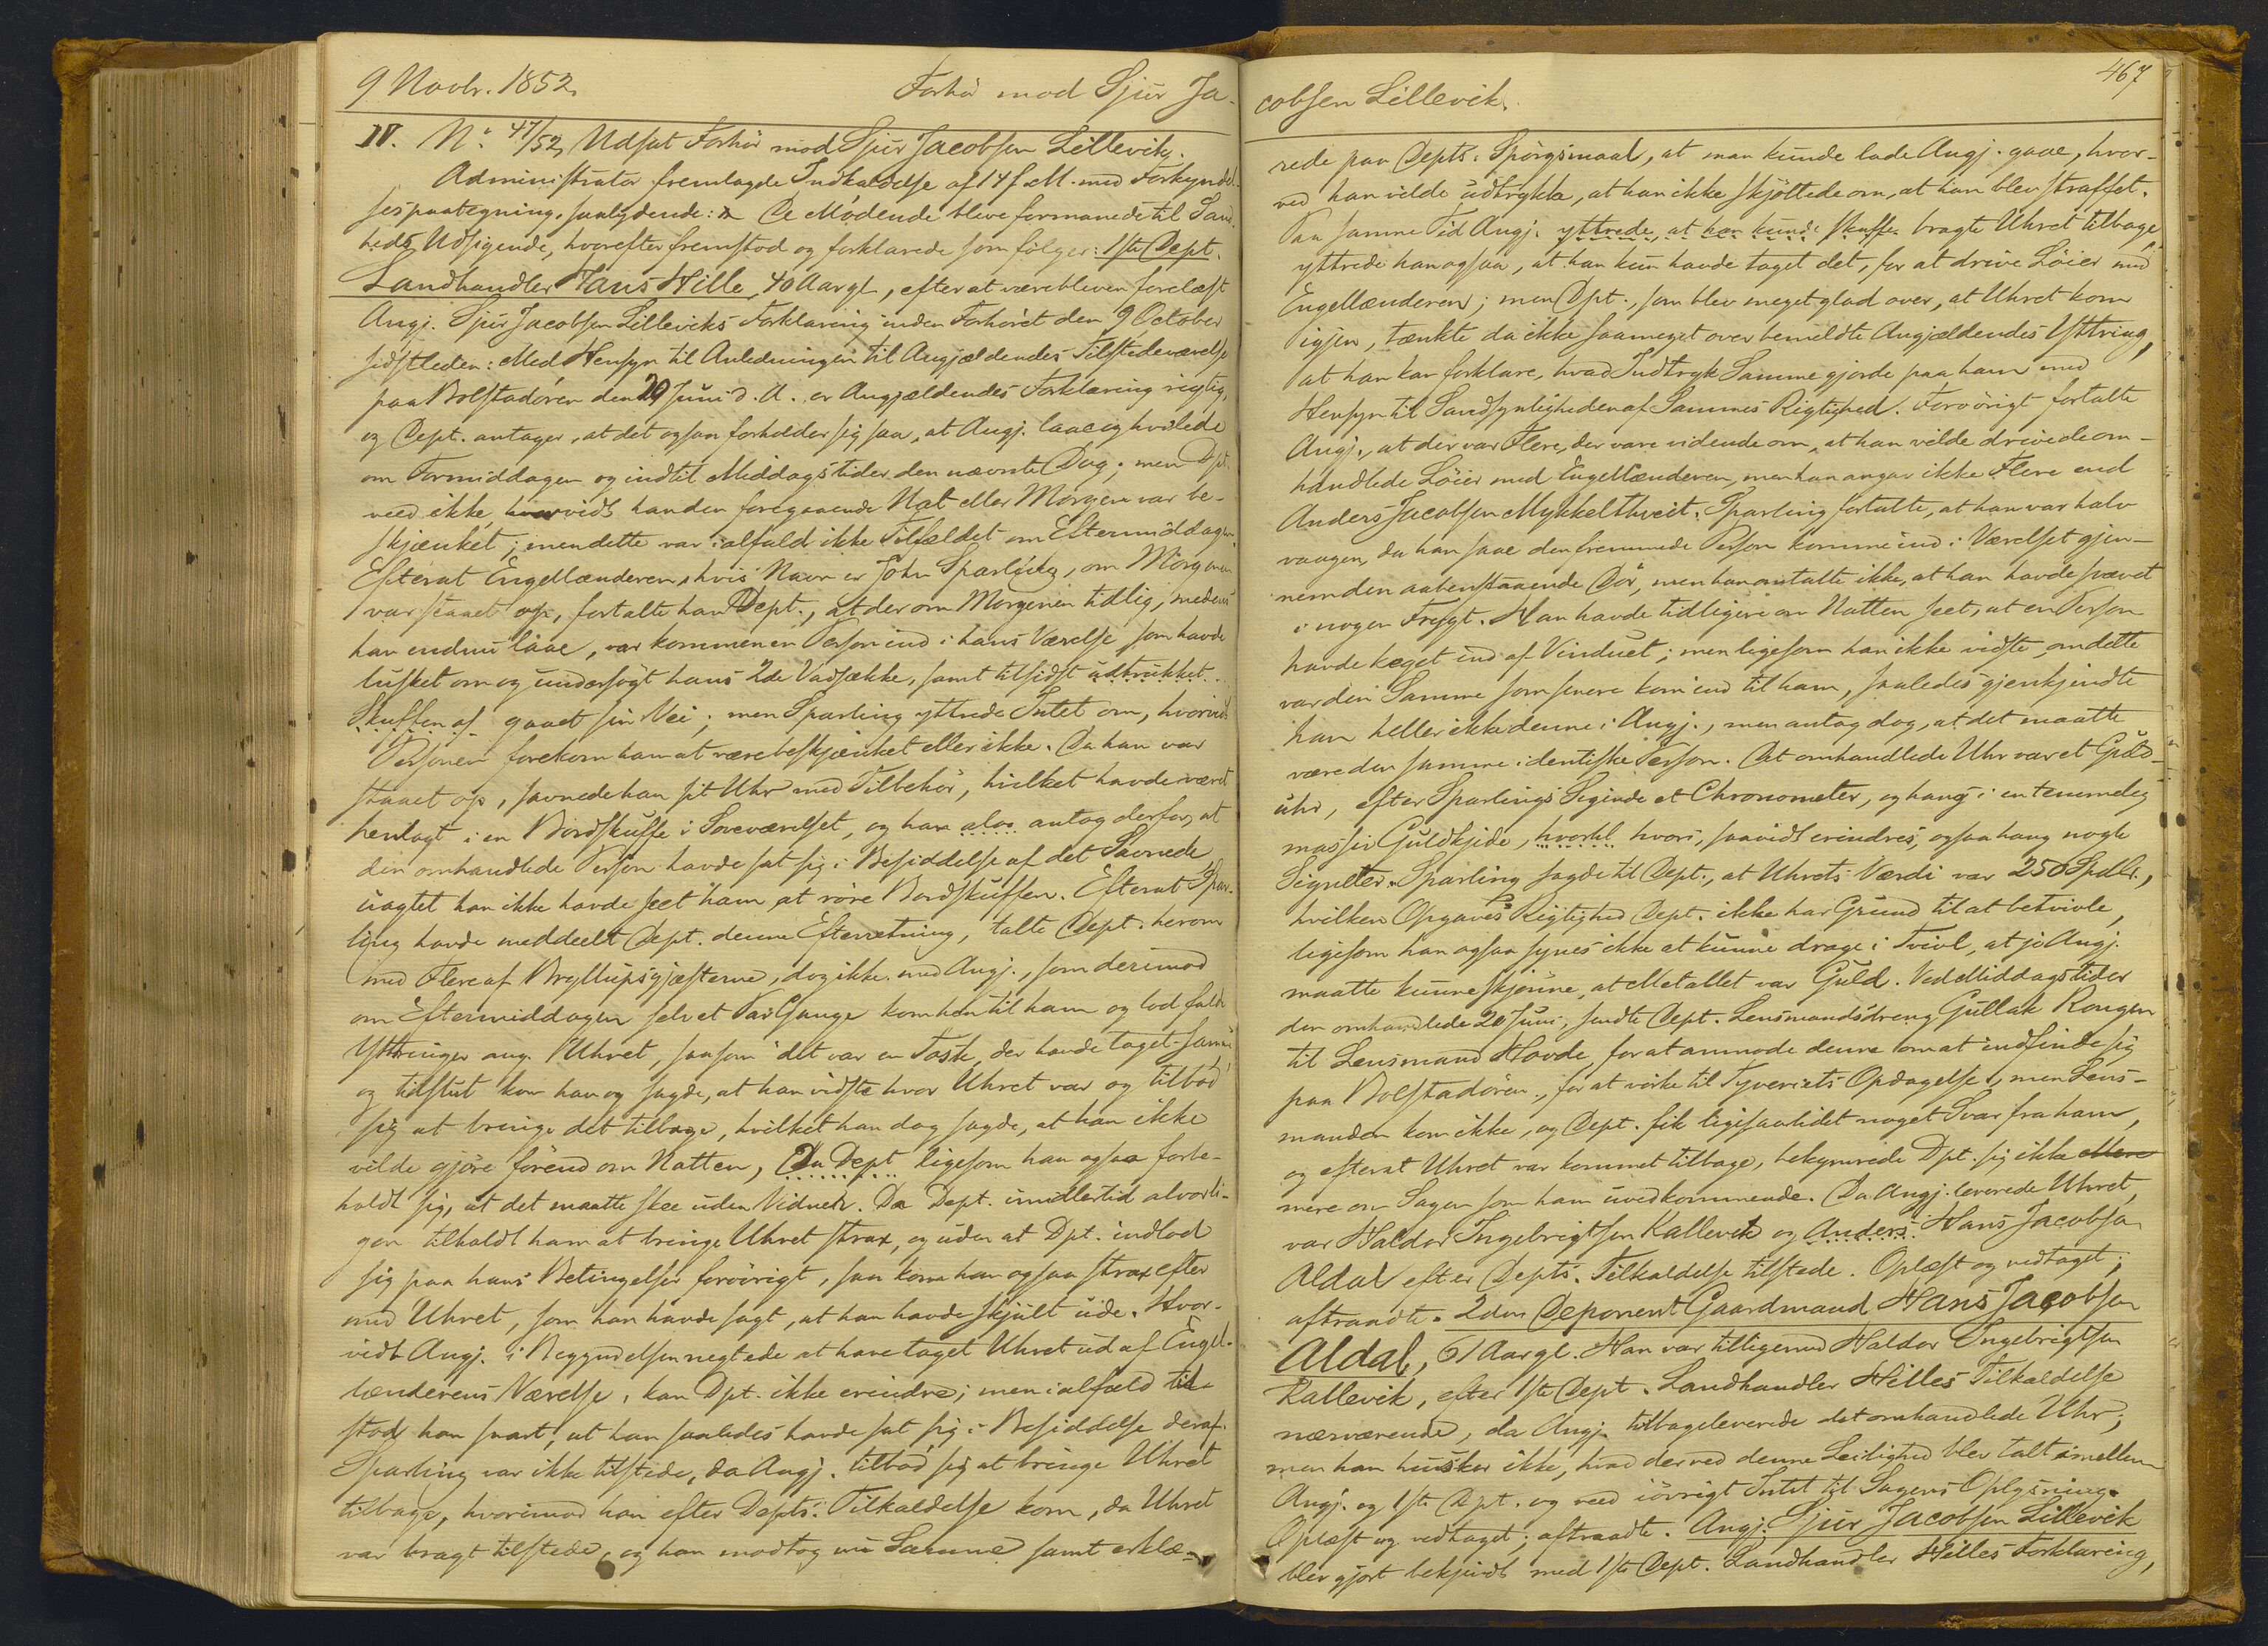 9 Novbr. 1852.
Forhör mod Sjur Ja-
IV. No 47/52, Udsat Forhör mod Sjur Jacobsen Lillevik.
Administrator fremlagde Indkaldelse af 14 f. M. med Forkyndel-
sespaategning, saalydende: De Mödende bleve formanede til Sand-
heds Udsigende, hvorefter fremstod og forklarede som fölger: 1ste Dept.
Landhandler Hans Hille, 40 Aar gl., efter at være bleven forelæst
Angj. Sjur Jacobsen Lilleviks Forklaring inden Forhöret den 9 October
sidstleden: Med Hensyn til Anledningen til Angjældendes Tilstedeværelse
paa Bolstadören den 20 Juni d. A. er Angjældendes Forklaring rigtig,
og Dept. antager, at det ogsaa forholder sig saa, at Angj. laae og hvilede
om Formiddagen og indtil Middagstider den nævnte Dag; men Dpt.
veed ikke hvorvidt han den foregaaende Nat eller Morgen var be-
skjænket; men dette var ialfald ikke Tilfældet om Eftermiddagen.
Efterat Engellænderen, hvis Navn er John Sparling, om Morgenen
var staaet op, fortalte han Dept., at der om Morgenen tidlig, medens
han endnu laae, var kommen en Person ind i hans Værelse, som havde
lusket om og undersögt hans 2de Vadsække, samt tilsidst udtrukket
Skuffen af gaaet sin Vei; men Sparling yttrede Intet om, hvorvidt
Personen forekom ham at være beskjænket eller ikke. Da han var
staaet op, savnede han sit Uhr med Tilbehör, hvilket havde været
henlagt i en Bordskuffe i Soveværelset, og han alos antog derfor, at
den omhandlede Person havde sat sig i Besiddelse af det Savnede
uagtet han ikke havde seet ham at röre Bordskuffen. Efterat Spar-
ling havde meddeelt Dept. denne Efterretning, talte Dept. herom
med Flere af Bryllupsgjæsterne, dog ikke med Angj., som derimod
om Eftermiddagen selv et Par Gange kom hen til ham og lod falde
Yttringer ang. Uhret, saasom det var en Tosk, der havde taget Samme
og tilslut kom han og sagde, at han vidste hvor Uhret var og tilböd
sig at bringe det tilbage, hvilket han dog sagde, at han ikke
vilde gjöre förend om Natten, Da Dept ligesom han ogsaa forbe-
holdt sig, at det maatte skee uden Vidner. Da Dept. imidlertid alvorli-
gen tilholdt ham at bringe Uhret strax, og uden at Dpt. indlod
sig paa hans Betingelser forövrigt, saa kom han ogsaa strax efter
med Uhret, som han havde sagt, at han havde skjult ude. Hvor-
vidt Angj. i Begyndelsen negtede at have taget Uhret ud af Engel-
lænderens Værelse, kan Dpt. ikke erindre; men ialfald til-
stod han snart, at han saaledes havde sat sig i Besiddelse deraf.
Sparling var ikke tilstede, da Angj. tilböd sig at bringe Uhret
tilbage, hvorimod han efter Depts. Tilkaldelse kom, da Uhret
var bragt tilstede, og han modtog nu Samme samt erklæ-
467
cobsen Lillevik.
rede paa Depts. Spörgsmaal, at man kunde lade Angj. gaae, hvor-
ved han vilde udtrykke, at han ikke skjöttede om, at han blev straffet.
Paa samme Tid Angj. yttrede, at han kunde skaffe bragte Uhret tilbage
yttrede han ogsaa, at han kun havde taget det, for at drive Löier med
Engellænderen; men Dpt., som blev meget glad over, at Uhret kom
igjen, tænkte da ikke saameget over bemeldte Angjældendes Yttring,
at han kan forklare, hvad Indtryk Samme gjorde paa ham med
Hensyn til Sandsynligheden af Sammes Rigtighed. Forövrigt fortalte
Angj., at der var Flere, der vare vidende om, at han vilde drive de om-
handlede Löier med Engellænderen, men han angav ikke Flere end
Anders Jacobsen Mykkelthveit. Sparling fortalte, at han var halv
vaagen, da han saae den fremmede Person komme ind i Værelset gjen-
nem den aabenstaaende Dör, men han omtalte ikke, at han havde svævet
i nogen Frygt. Han havde tidligere om Natten seet, at en Person
havde keget ind af Vinduet; men ligesom han ikke vidste, om dette
var den Samme som senere kom ind til ham, saaledes gjenkjendte
han heller ikke denne i Angj., men antog dog, at det maatte
være den samme identiske Person. Det omhandlede Uhr var et Guld-
uhr, efter Sparlings Sigende et Chronometer, og hang i en temmelig
massiv Guldkjede, hvortil hvori, saavidt erindres, ogsaa hang nogle
Signeter. Sparling sagde til Dept., at Uhrets Værdi var 250 Spdlr.,
hvilken Opgaves Rigtighed Dept. ikke har Grund til at betvivle,
ligesom han ogsaa synes ikke at kunne drage i Tvivl, at jo Angj.
maatte kunne skjönne, at Metallet var Guld. Ved Middagstider
den omhandlede 20 Juni, sendte Dept. Lensmandsdreng Gullak Rongen
til Lensmand Hovde, for at anmode denne om at indfinde sig
paa Bolstadören, for at virke til Tyveriets Opdagelse, men Lens-
manden kom ikke, og Dept. fik ligesaalidet noget Svar fra ham,
og efterat Uhret var kommet tilbage, bekymrede Dpt. sig ikke
mere om Sagen som ham uvedkommende. Da Angj. leverede Uhret,
var Haldor Ingebrigtsen Kallevik og Anders Hans Jacobsen
Aldal efter Depts. Tilkaldelse tilstede. Oplæst og vedtaget;
aftraadte. 2den Deponent Gaardmand Hans Jacobsen
Aldal, 61 Aar gl. Han var tilligemed Haldor Ingebrigtsen
Kallevik, efter 1ste Dept. Landhandler Hilles Tilkaldelse
nærværende, da Angj. tilbageleverede det omhandlede Uhr;
men han husker ikke, hvad der ved denne Leilighed blev talt imellem
Angj. og 1ste Dpt. og veed iövrigt Intet til Sagens Oplysning.
Oplæst og vedtaget; aftraadte. Angj. Sjur Jacobsen Lillevik
blev gjort bekjendt med 1ste Dept. Landhandler Hilles Forklaring,